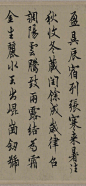 盈昃辰宿列張寒来暑往
秋收冬藏閏餘成歲律召
調陽雲騰致雨露結為霜
金生麗水玉出崐崗劍號